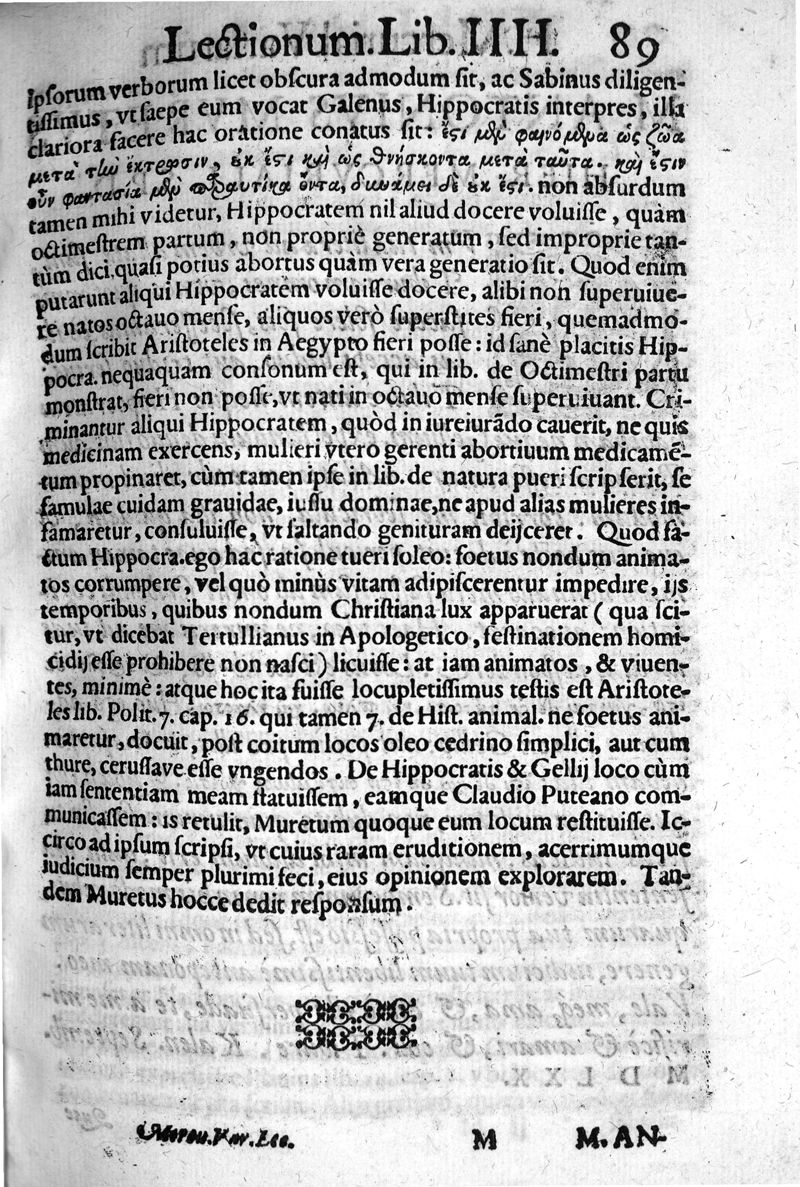 Lectionum. Lib. IIII. 89
ipsorum verborum licet obscura admodum sit, ac Sabinus diligen-
tissimus, vt saepe eum vocat Galenus, Hippocratis interpres, illa
clariora facere hac oratione conatus sit: ἔςι μὲν φαινόμενα ὡς ζῶα
μετὰ τὴν ἔκτρωσιν, ἐκ ἔςι καὶ ὡς θνήσκοντα μετὰ ταῦτα. καὶ ἔςιν
οὖν φαντασία μὲν παραυτίκα ὄντα, δυνάμει δὲ ἐκ ἔςι. non absurdum
tamen mihi videtur, Hippocratem nil aliud docere voluisse, quàm
octimestrem partum, non propriè generatum, sed improprie tan-
tùm dici. quasi potius abortus quàm vera generatio sit. Quod enim
putarunt aliqui Hippocratem voluisse docere, alibi non superuiue-
re natos octauo mense, aliquos verò superstites fieri, quemadmo-
dum scribit Aristoteles in Aegypto fieri posse: id sanè placitis Hip-
pocra. nequaquam consonum est, qui in lib. de Octimestri partu
monstrat, fieri non posse, vt nati in octauo mense superuiuant. Cri-
minantur aliqui Hippocratem, quòd in iureiurãdo cauerit, ne quis
medicinam exercens, mulieri vtero gerenti abortiuum medicamẽ-
tum propinaret, cùm tamen ipse in lib. de natura pueri scripserit, se
famulae cuidam grauidae, iussu dominae, ne apud alias mulieres in-
famaretur, consuluisse, vt saltando genituram deijceret. Quod fa-
ctum Hippocra. ego hac ratione tueri soleo: foetus nondum anima-
tos corrumpere, vel quò minùs vitam adipiscerentur impedire, ijs
temporibus, quibus nondum Christiana lux apparuerat (qua sci-
tur, vt dicebat Tertullianus in Apologetico, festinationem homi-
cidij esse prohibere non nasci) licuisse: at iam animatos, & viuen-
tes, minimè: atque hoc ita fuisse locupletissimus testis est Aristote-
les lib. Polit. 7. cap. 16. qui tamen 7. de Hist. animal. ne foetus ani-
maretur, docuit, post coitum locos oleo cedrino simplici, aut cum
thure, cerussave esse vngendos. De Hippocratis & Gellij loco cùm
iam sententiam meam statuissem, eamque Claudio Puteano com-
municassem: is retulit, Muretum quoque eum locum restituisse. Ic-
circo ad ipsum scripsi, vt cuius raram eruditionem, acerrimumque
iudicium semper plurimi feci, eius opinionem explorarem. Tan-
dem Muretus hocce dedit responsum.
Mercu. Var. Lec. M M. AN-